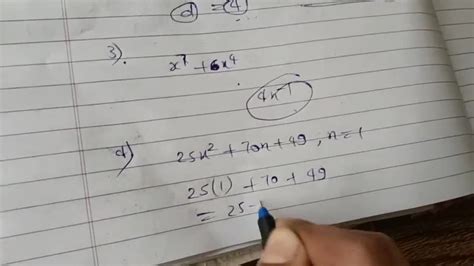 d = 4
3). x⁷ + 6x⁴
4x⁻¹
4) 25x² + 70x + 49, x = 1
25(1) + 70 + 49
= 25 -